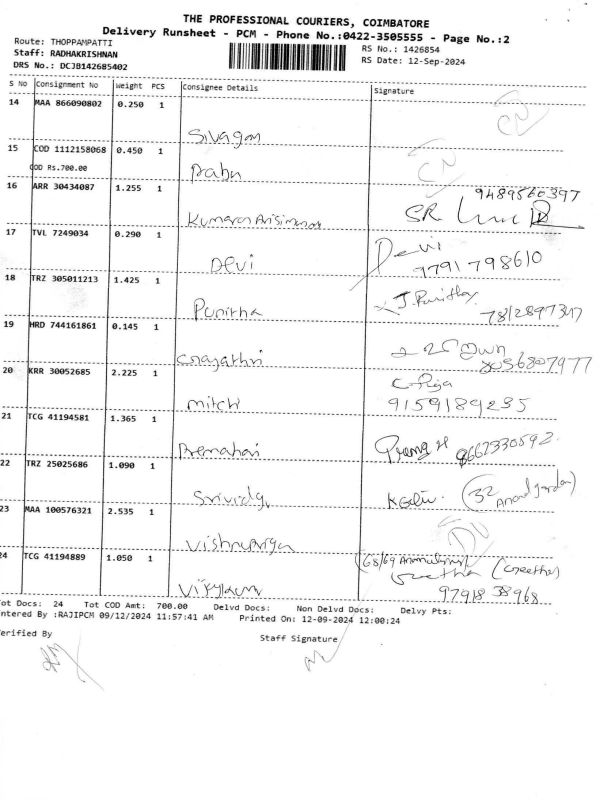 THE PROFESSIONAL COURIERS, COIMBATORE
Delivery Runsheet - PCM - Phone No.:0422-3505555 - Page No.:2
Route: THOPPAMPATTI
Staff: RADHAKRISHNAN
RS No.: 1426854
DRS No.: DCJB142685402
RS Date: 12-Sep-2024
S No Consignment No Weight PCS Consignee Details Signature
14 MAA 866090802 0.250 1
CN
Sivagam
15 COD 1112158068 0.450 1
COD Rs.700.00
CN
Babu
16 ARR 30434087 1.255 1
9489560397
Kumaran SR
17 TVL 7249034 0.290 1
Devi
Devi 7791798610
18 TRZ 305011213 1.425 1
J. Punitha
Punitha 7812897347
19 HRD 744161861 0.145 1
Own
Gayathri 8056807977
20 KRR 30052685 2.225 1
mitch 9159189235
21 TCG 41194581 1.365 1
Premahari 8662330592
22 TRZ 25025686 1.090 1
Srividy (32 Anand Garden)
23 MAA 100576321 2.535 1
Vishnupriya
24 TCG 41194889 1.050 1
68/69 (Geetha)
97918 38968
Tot Docs: 24 Tot COD Amt: 700.00 Delvd Docs: Non Delvd Docs: Delvy Pts:
Entered By :RAJIPCM 09/12/2024 11:57:41 AM Printed On: 12-09-2024 12:00:24
Verified By
Staff Signature